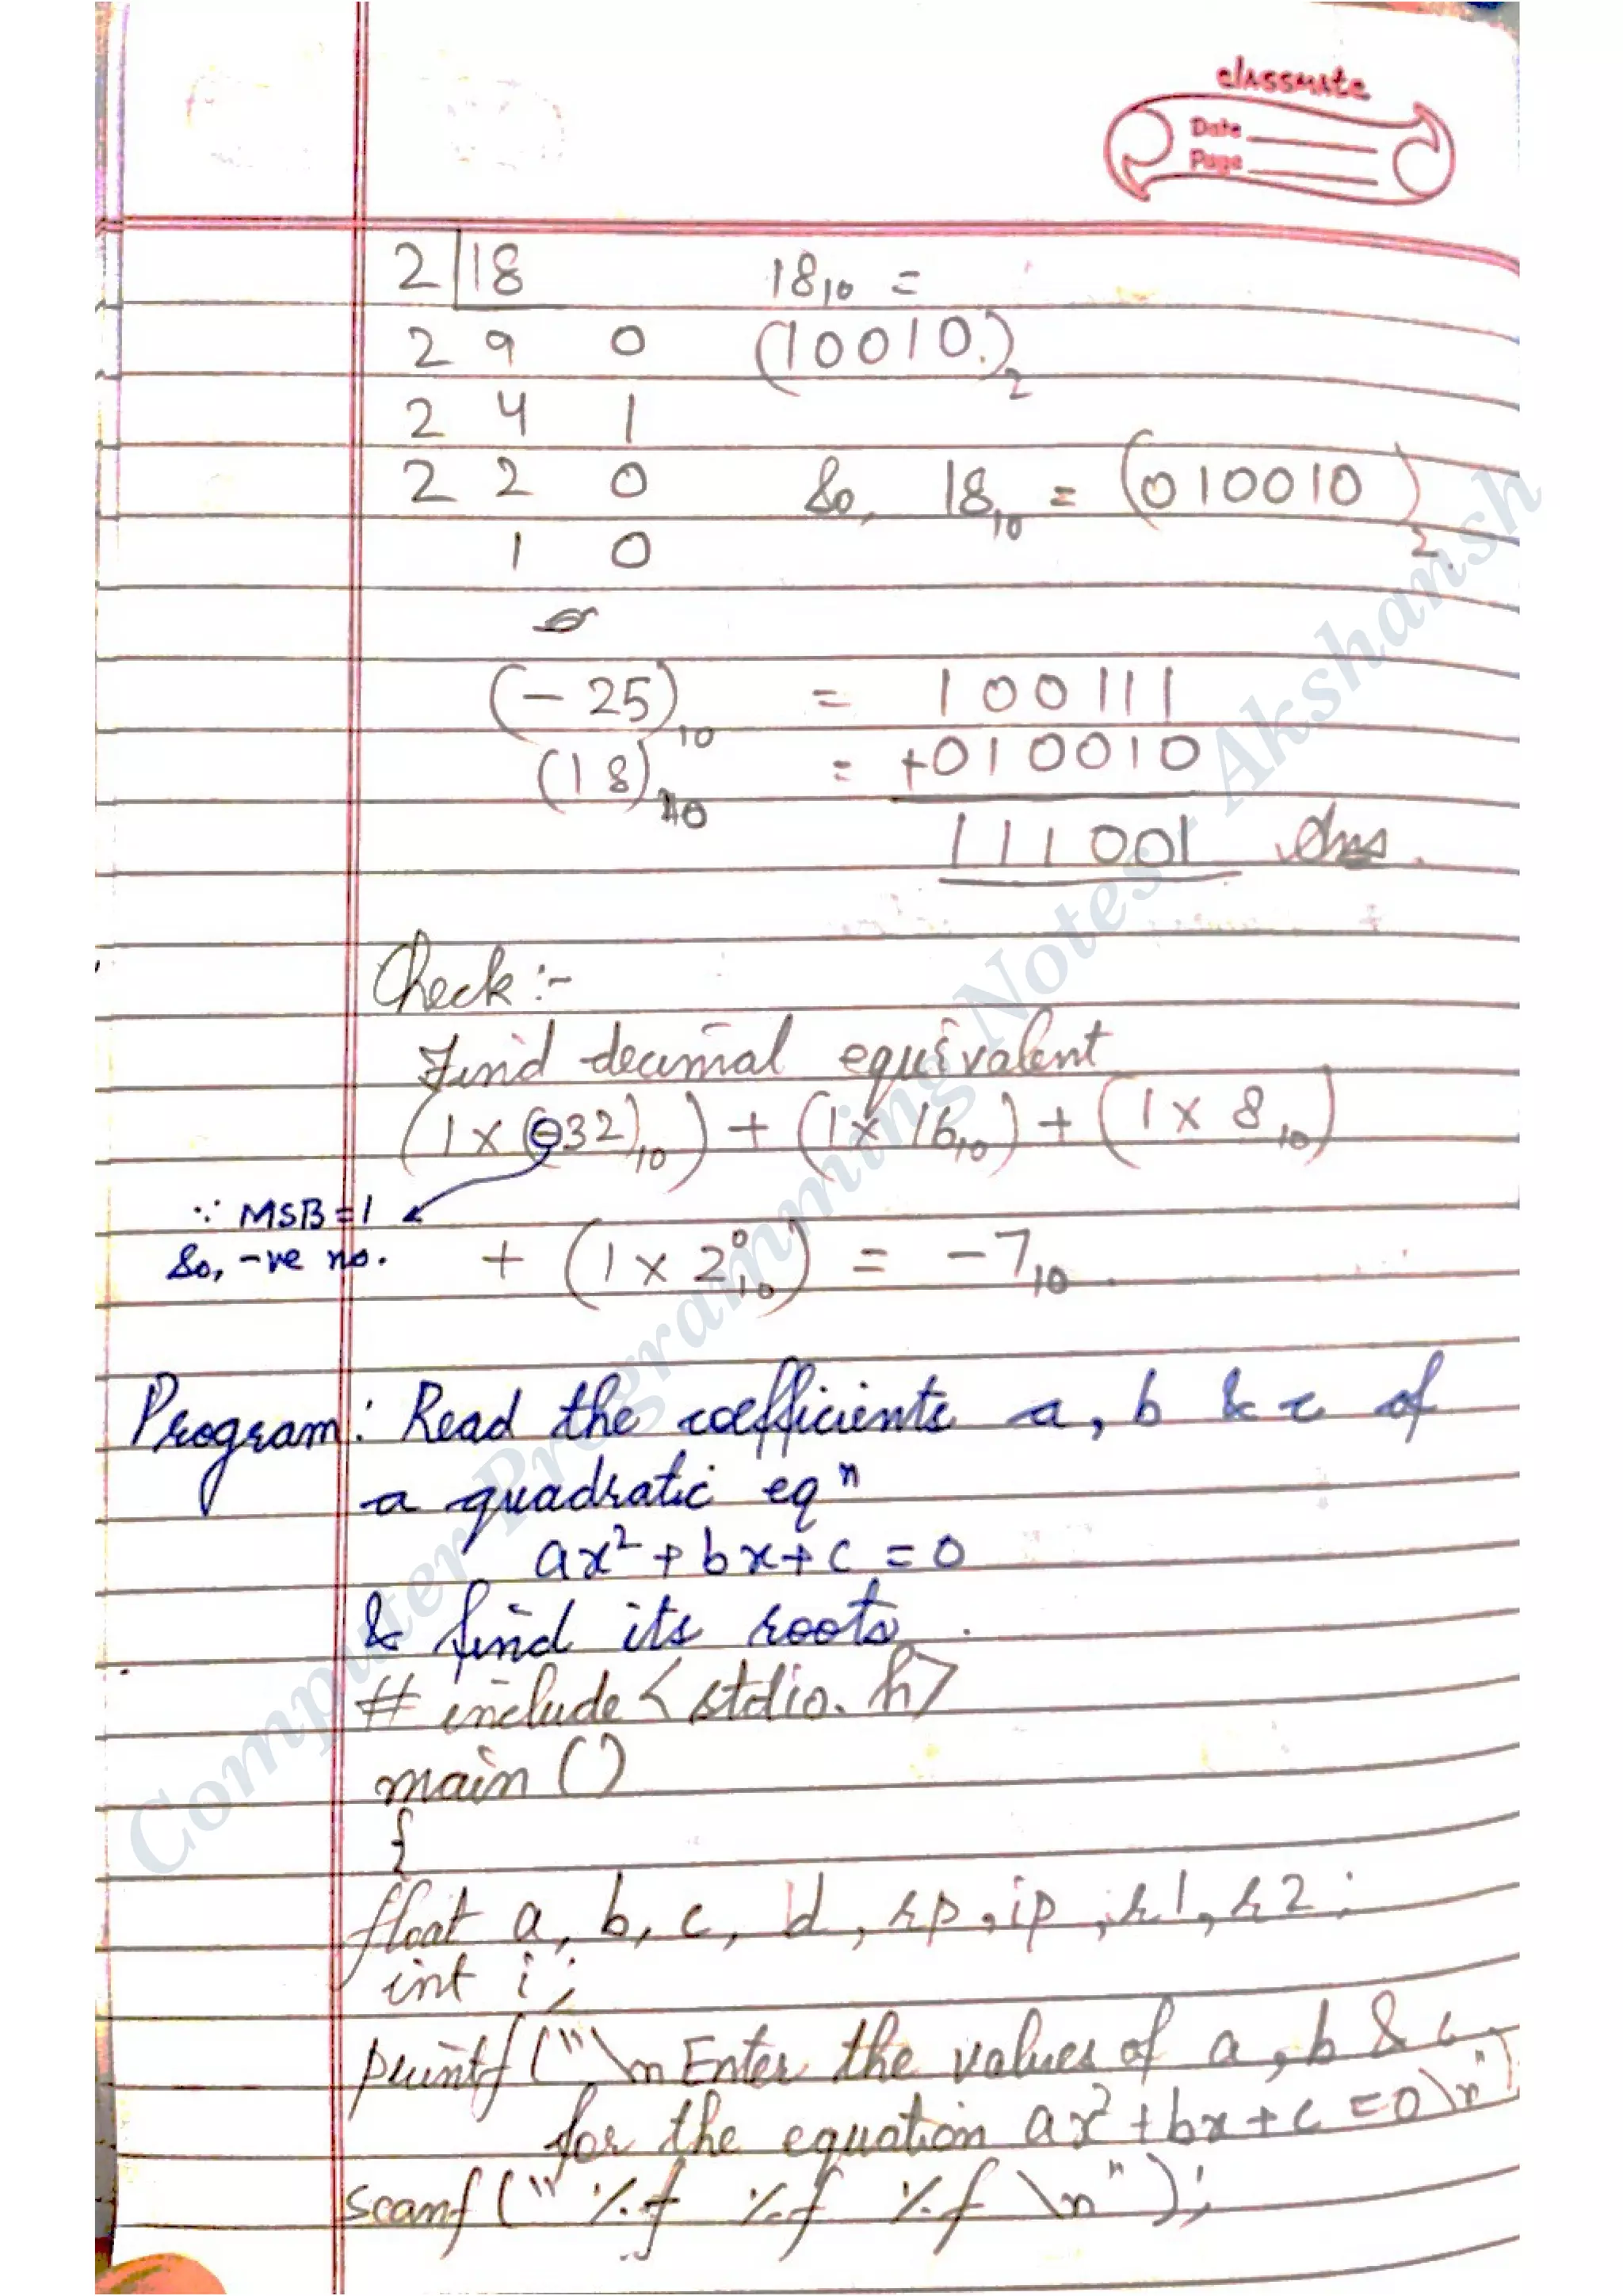 classmate
Date
Page
2 | 18    18₁₀ =
2 9 0    (10010.)₂
2 4 1
2 2 0    So, 18₁₀ = (010010)₂
1 0
(-25)₁₀ = 100111
(18)₁₀ = +010010
111001 Ans.
Check :-
Find decimal equivalent
(1 x (-32)₁₀) + (1 x 16₁₀) + (1 x 8₁₀)
∵ MSB = 1
So, -ve no.
+ (1 x 2⁰₁₀) = -7₁₀.
Program: Read the coefficients a, b & c of
a quadratic eqⁿ
ax² + bx + c = 0
& find its roots.
# include < stdio. h>
main ()
{
float a, b, c, d, rp, ip, r1, r2;
int i;
printf ("\n Enter the values of a, b & c
for the equation ax² + bx + c = 0\n")
scanf (" %f %f %f \n");
Computer Programming Notes - Akshansh